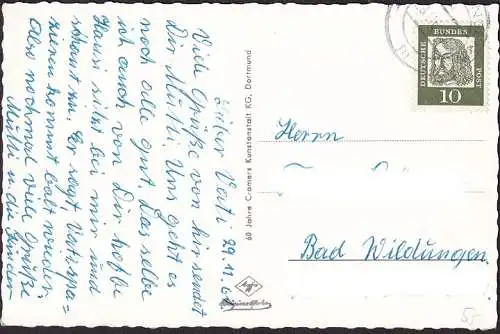 Lieber Vati 29.11.6
Viele Grüße von hir sendet
Dir Mutti. Uns geht es
noch alle gut. Dasselbe
ich auch von Dir hoffe
Hansi sitzt bei mir und
Er sagt Vati
kommt bald wieder.
Also nochmal viele Grüße
Mutti u. die Kinder
60 Jahre Cramers Kunstanstalt KG, Dortmund
Agfa
DEUTSCHE
BUNDES
POST
10
Herrn
Bad Wildungen